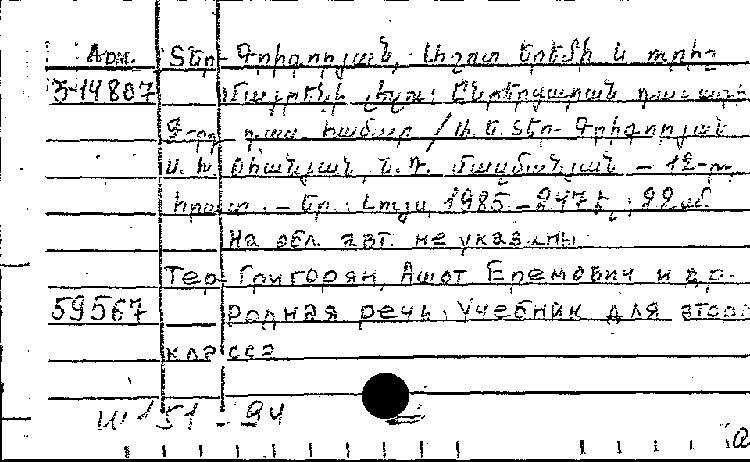 Арм. Տեր-Գրիգորյան, Աշոտ Երեմի և ուրիշ
3-14807 Մայրենի լեզու: Ընթերցարան
դաս. համար / Ա. Ե. Տեր-Գրիգորյան
Ս. Խ. Օհանյան, — 12-րդ
հրատ. — Եր.: Լույս, 1985. — 247 է.; 22 սմ
На обл. авт. не указаны
Тер-Григорян, Ашот Еремович и др.
59567 Родная речь: Учебник для
класса
151-94